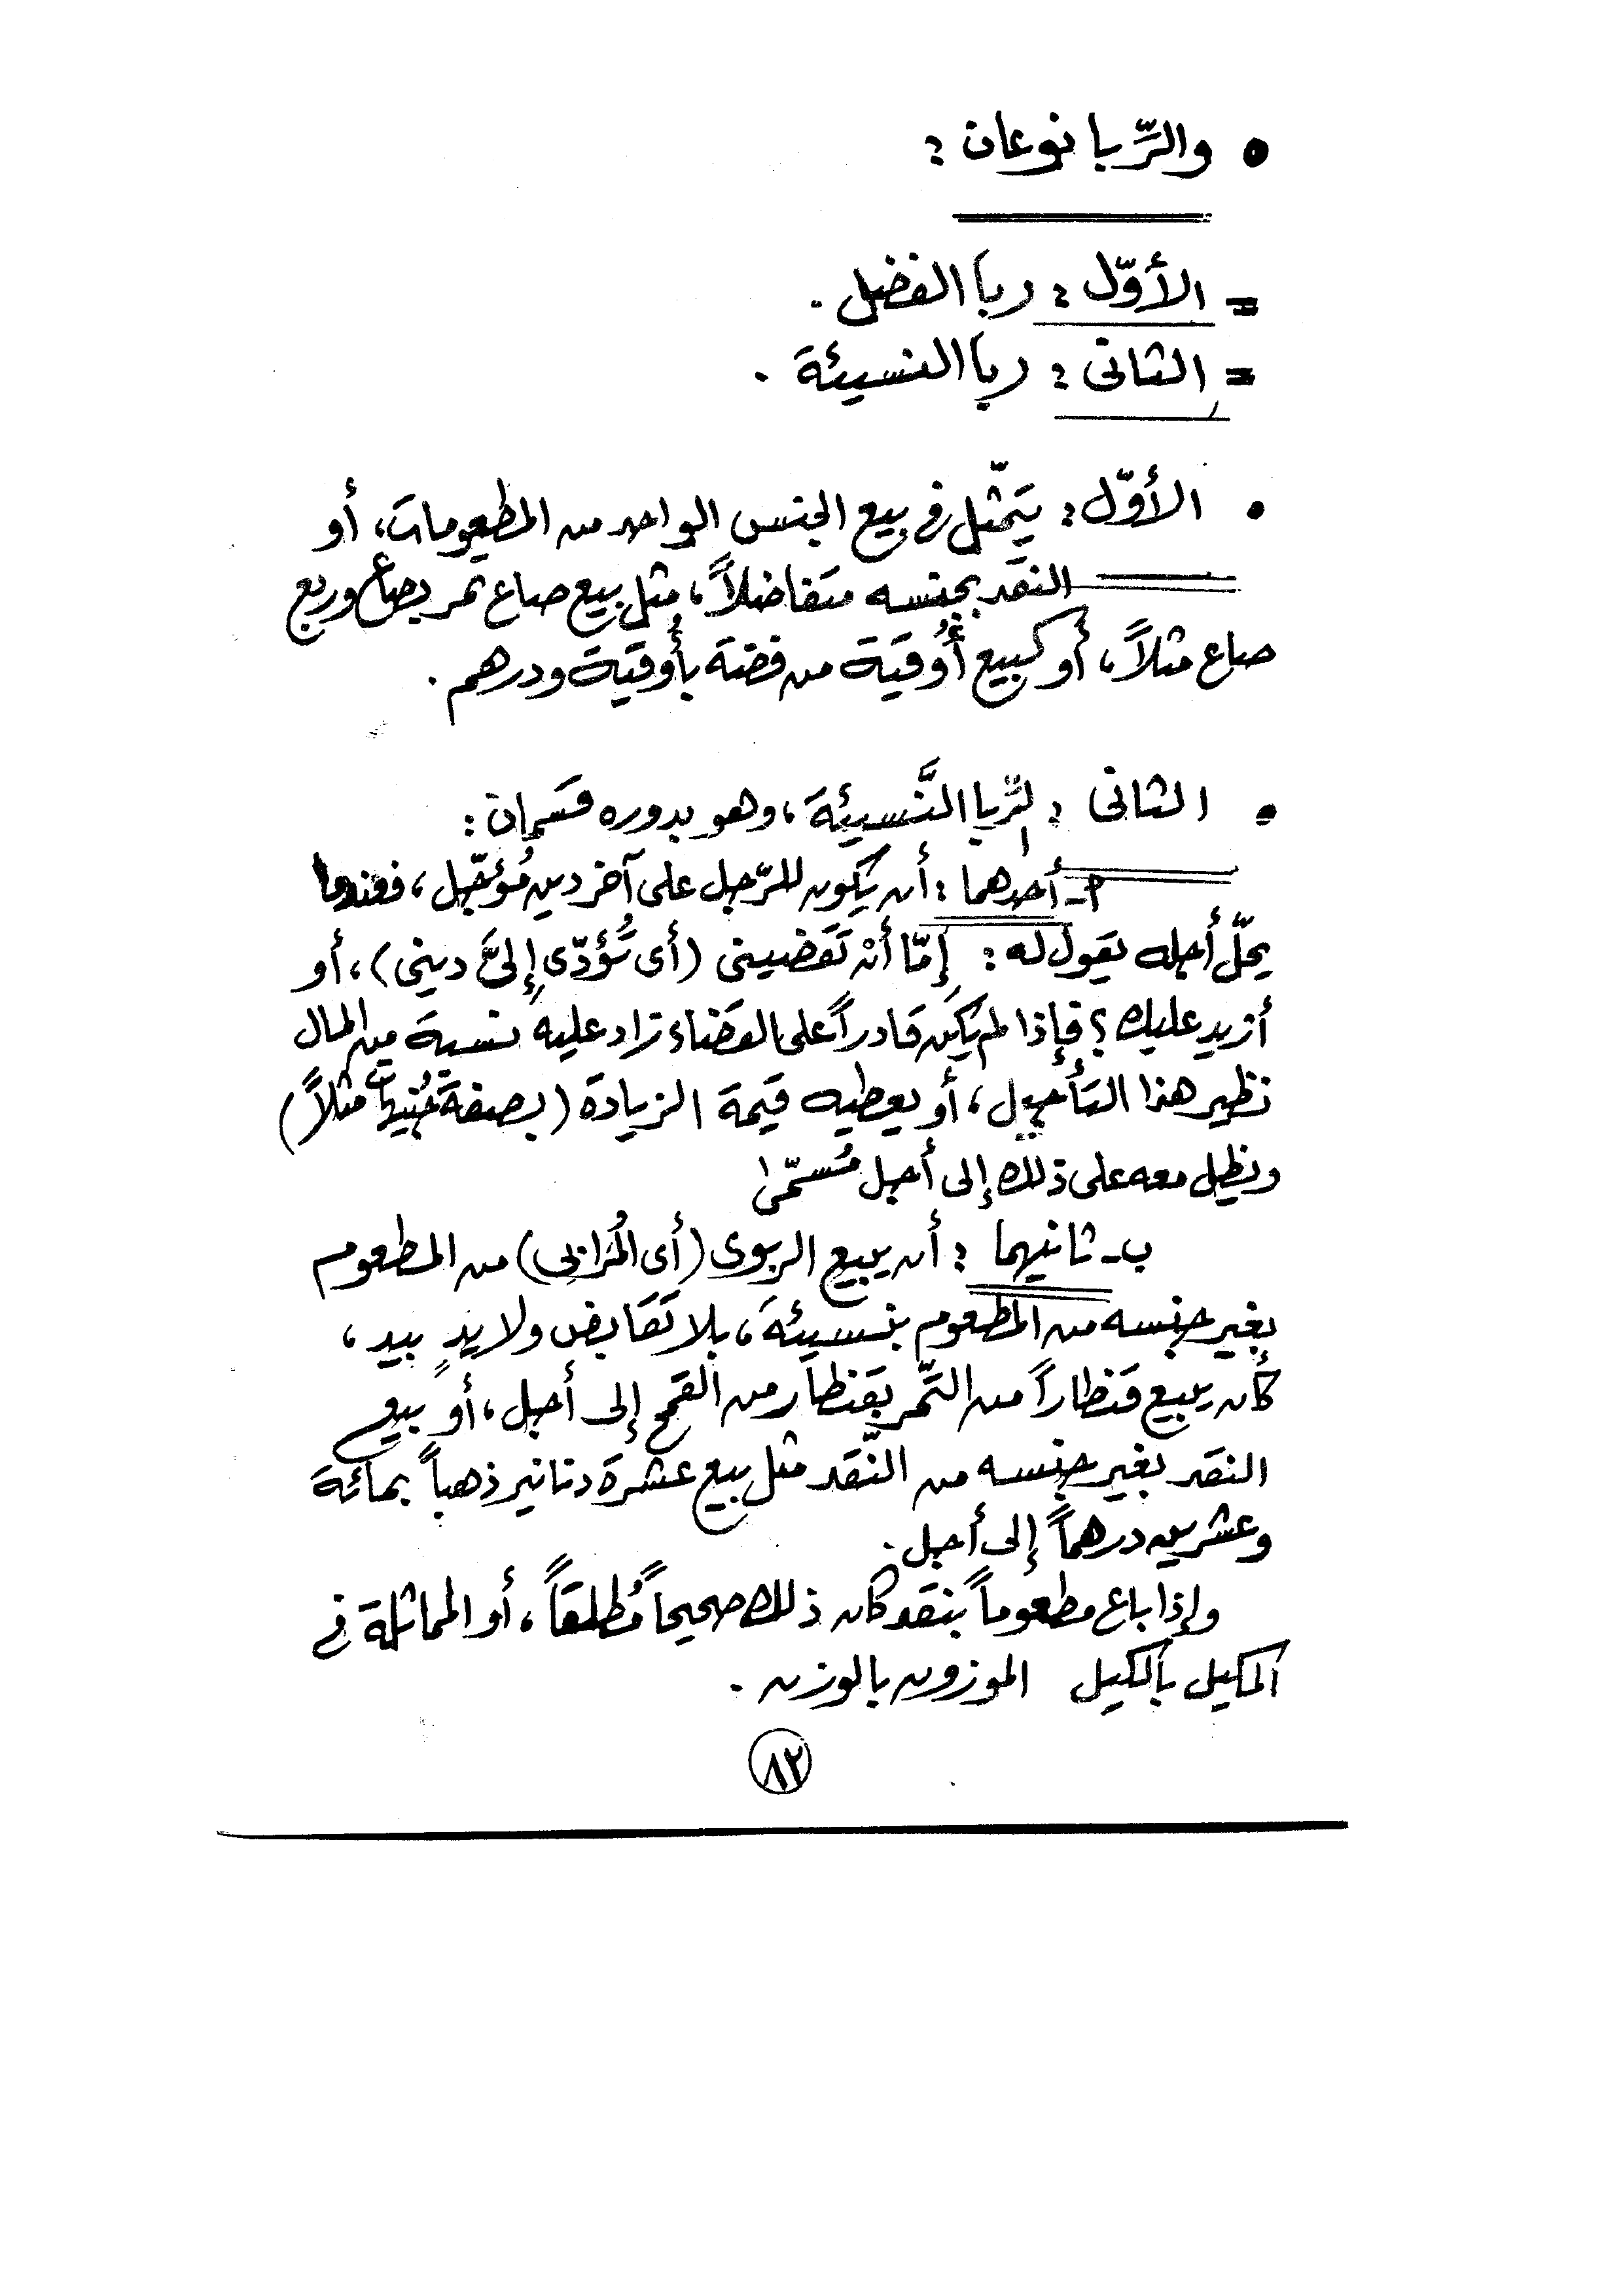 • والرِّبا نوعان :
= الأوّل : ربا الفضل .
= الثانى : ربا النسيئة .
• الأوّل : يتمثّل فى بيع الجنس الواحد من المطعومات، أو
النقد بجنسه متفاضلاً، مثل بيع صاع تمر بصاع وربع
صاع مثلاً، أو كبيع أُوقية من فضة بأُوقية ودرهم .
• الثانى : الرِّبا النَّسيئة، وهو بدوره قسمان :
أ- أحدهما : أن يكون للرّجل على آخر دين مُؤجّل، فعندما
يحلّ أجله يقول له : إمّا أنْ تقضينى (أى تُؤدّى إلىَّ دينى)، أو
أزيد عليك ؟ فإذا لم يكن قادراً على القضاء زاد عليه نسبة من المال
نظير هذا التأجيل، أو يعطيه قيمة الزيادة (بصفة جُنيهات مثلاً)
ويظل معه على ذلك إلى أجل مُسمّى
ب- ثانيهما : أن يبيع الربوى (أى المُرابى) من المطعوم
بغير جنسه من المطعوم بنسيئة، بلا تقابض ولا يدٍ بيد،
كأن يبيع قنطاراً من التّمر بقنطار من القمح إلى أجل، أو بيع
النقد بغير جنسه من النّقد مثل بيع عشرة دنانير ذهباً بمائة
وعشرين درهماً إلى أجل .
وإذا باع مطعوماً بنقد كان ذلك صحيحاً مُطلقاً، أو المماثلة فى
المكيل بالكيل الموزون بالوزن .
٨٢